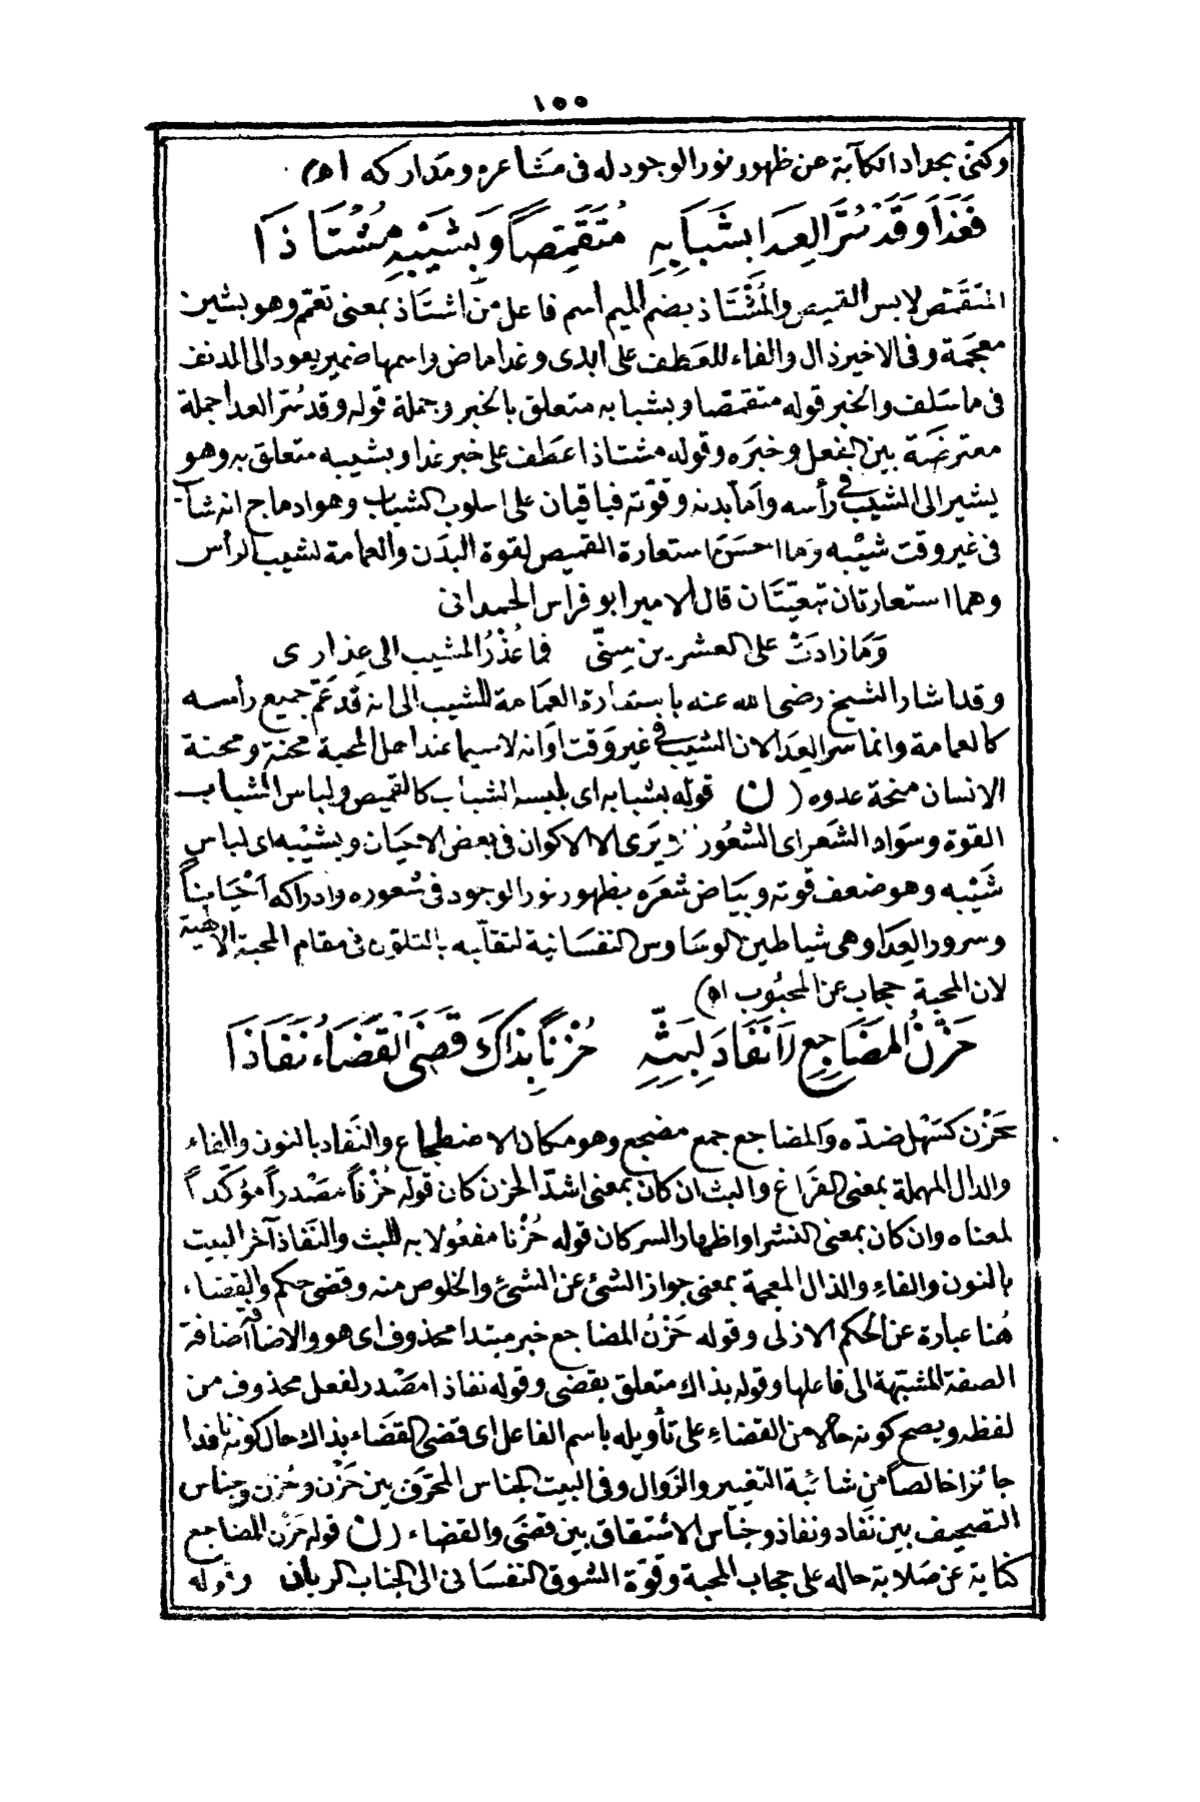 ١٥٥
وكنى بحداد الكآبة عن ظهور نور الوجود له فى مشاعره ومداركه اه)
فَغَدَا وَقَدْ سُرَّ العِدَا بشَبَابِهِ مُتَقَمِّصاً وَبشَيْبِهِ مُشْتَاذَا
المتقمّص لابس القميص والمُشْتَاذ بضم الميم اسم فاعل من اشتَاذ بمعنى تعمّم وهو بشين
معجمة وفى الاخير ذال والفاء للعطف على ابدى وغدا ماض واسمها ضمير يعود الى المدنف
فى ما سَلف والخبر قوله متقمّصا وبشبابه متعلق بالخبر وجملة قوله وقد سُرّ العدا جملة
معترضة بين الفعل وخبَره وقوله مشتاذا عَطف على خبر غدا وبشيبه متعلق به وهو
يشير الى الشيب فى رأسه وأما بدنه وقوّته فباقيان على اسلوب الشباب وهو ادماج انه شاب
فى غير وقت شيْبه وَما احسَن استعارة القميص لقوة البدَن والعمامة لشيب الرأس
وهما استعارتان تبعيّتَان قال الامير ابو فراس الحمدانى
وَمَا زادَتْ على العشرين سِنّى فما عُذْرُ المشيب الى عِذارى
وقد اشار الشيخ رضى الله عنه باستعارة العمَامة للشيب الى انه قد عَمّ جميع رأسه
كالعمامة وانما سر العِدَا لان الشيب فى غير وَقت اوَانه لا سيما عند اهل المحبة محنة ومحنة
الانسان منحة عدوه (ن) قوله بشبابه اى بلبسه الشباب كالقميص ولباس الشباب
القوة وسوَاد الشَعر اى الشعُور يَرى الا الاكوان فى بعض الاحيَان وبشيْبه اى لباس
شَيْبه وهو ضعف قوته وبيَاض شعَره بظهور نور الوجود فى شعوره وادراكه اَحْيَاناً
وسرور العِدَا وهى شياطين الوسَاوس النفسَانية لتقلّبه بالتلون فى مقام المحبة الالهية
لان المحبة حجاب عن المحبُوب اه)
حَزْنُ المَضَاجِعِ لَا نَفَادَ لِبَثِّهِ حُزْناً بِذَاكَ قَضَى القَضَاءُ نَفَاذَا
حَزْن كسَهْل ضدّه والمضاجع جمع مضجع وهو مكان الاضطجاع والنَفاد بالنون والفاء
والدال المهملة بمعنى الفرَاغ والبث ان كان بمعنى اشدّ الحزن كان قوله حُزْناً مصْدراً مؤكّداً
لمعناه وان كان بمعنى النشر او اظهار السر كان قوله حُزْنا مفعُولا به للبث والنَفاذ آخر البيت
بالنون والفاء والذال المعجمة بمعنى جواز الشئ عن الشئ والخلوص منه وقضى حكم والقضاء
هُنا عبارة عن الحكم الازلى وقوله حَزْنُ المضاجع خبر مبتدا محذوف اى هو والاضافة اضافة
الصفة المشبّهة الى فاعلها وقوله بذاك متعلق بقضى وقوله نفاذا مصْدر لفعل محذوف من
لفظه ويصح كونه حالا من القضاءِ على تأويله باسم الفاعل اى قضى القضَاء بذاك حال كونه نافذا
جائزا خالصاً من شائبة التغيير والزوال وفى البيت الجناس المحرّف بين حَزْن وحُزن وجناس
التصحيف بين نَفاد ونفاذ وجنَاس الاشتقاق بين قضَى والقضاء (ن) قوله حَزن المضاجع
كناية عن صَلابة حاله على حجاب المحبة وقوّة الشوق النفسَانى الى الجناب الربانى وقوله